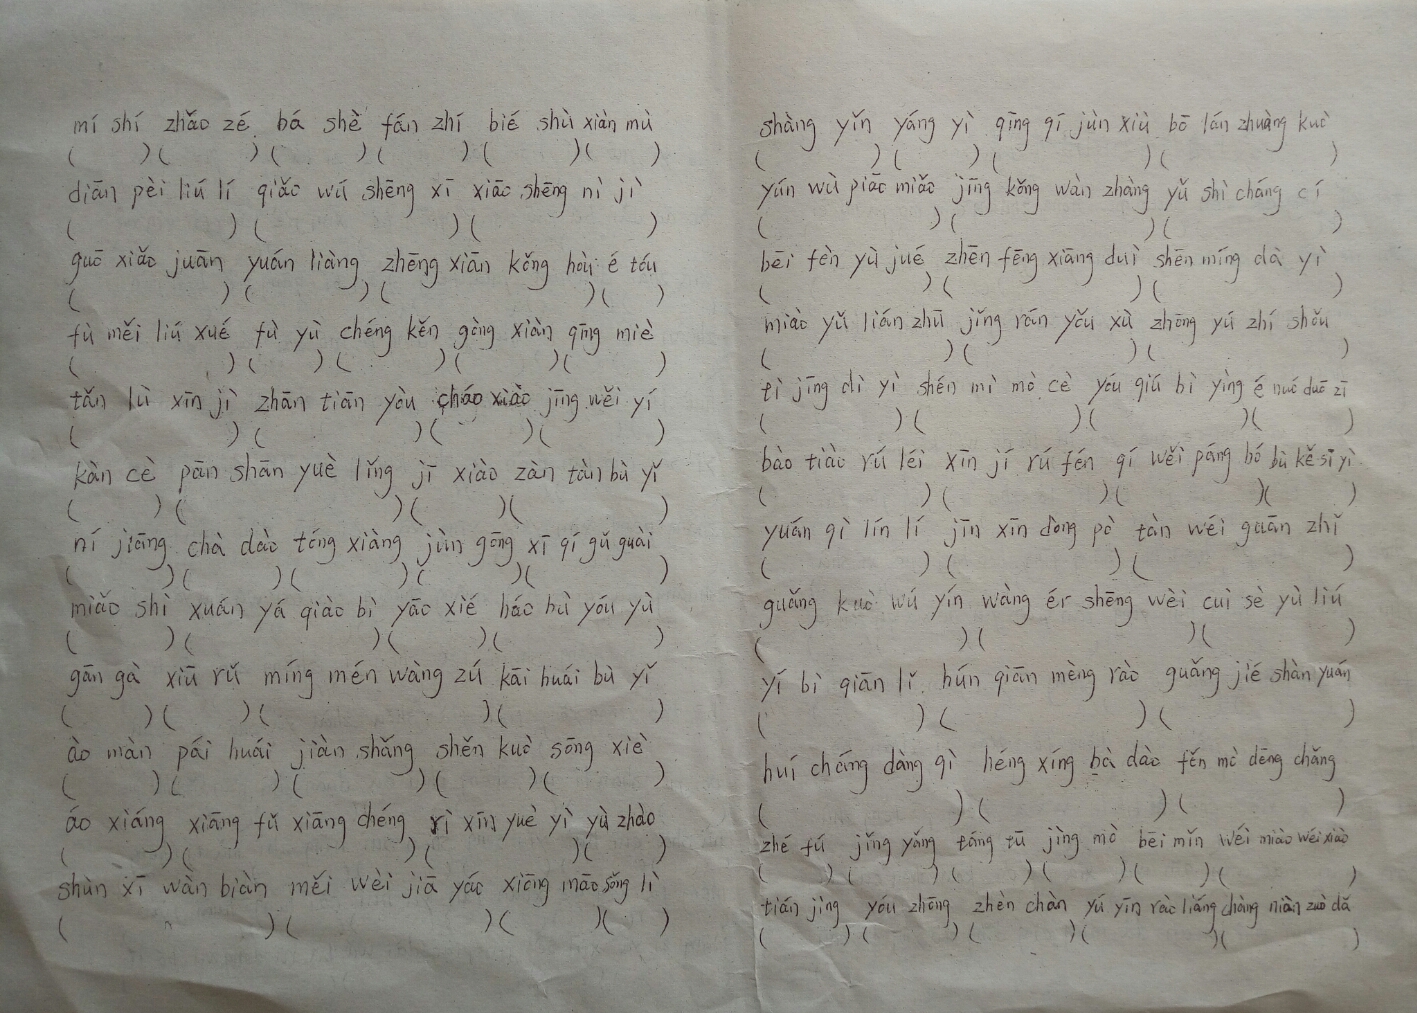 mí shí zhǎo zé bá shè fán zhí bié shù xiàn mù
( )( )( )( )( )( )
diān pèi liú lí qiǎo wú shēng xī xiāo shēng nì jì
( )( )( )
guō xiǎo juān yuán liàng zhēng xiān kǒng hòu é tóu
( )( )( )( )
fù měi liú xué fù yù chéng kěn gòng xiàn qīng miè
( )( )( )( )( )
tǎn lù xīn jì zhān tiān yòu cháo xiào jīng wěi yí
( )( )( )( )
kàn cè pān shān yuè lǐng jī xiào zàn tàn bù yǐ
( )( )( )( )
ní jiāng chà dào tóng xiàng jùn gōng xī qí gǔ guài
( )( )( )( )( )
miǎo shì xuán yá qiào bì yāo xié háo bù yóu yù
( )( )( )( )
gān gà xiū rǔ míng mén wàng zú kāi huái bù yǐ
( )( )( )( )
ào màn pái huái jiàn shǎng shěn kuò sōng xiè
( )( )( )( )( )
áo xiáng xiāng fǔ xiāng chéng rì xīn yuè yì yù zhào
( )( )( )( )
shùn xī wàn biàn měi wèi jiā yáo xiōng māo sǒng lì
( )( )( )( )
shàng yǐn yáng yì qīng qí jùn xiù bō lán zhuàng kuò
( )( )( )( )
yún wù piāo miǎo jīng kǒng wàn zhàng yǔ shì cháng cí
( )( )( )
bēi fèn yù jué zhēn fēng xiāng duì shēn míng dà yì
( )( )( )
miào yǔ lián zhū jǐng rán yǒu xù zhōng yú zhí shǒu
( )( )( )
tì jīng dì yì shén mì mò cè yóu qiú bì yìng é nuó duō zī
( )( )( )( )
bào tiào rú léi xīn jí rú fén qí wěi páng bó bù kě sī yì
( )( )( )( )
yuán qì lín lí jīn xīn dòng pò tàn wéi guān zhǐ
( )( )( )
guǎng kuò wú yín wàng ér shēng wèi cuì sè yù liú
( )( )( )
yí bì qiān lǐ hún qiān mèng rào guǎng jié shàn yuán
( )( )( )
huí cháng dàng qì héng xíng bà dào fěn mò dēng chǎng
( )( )( )
zhé fú jǐng yǎng táng tū jìng mò bēi mǐn wéi miào wéi xiào
( )( )( )( )( )( )
tián jìng yóu zhōng zhèn chàn yú yīn rào liáng chàng niàn zuò dǎ
( )( )( )( )( )